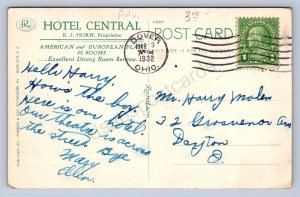 Adv.
3.50
HOTEL CENTRAL
E. J. HORN, Proprietor.
AMERICAN and EUROPEAN PLAN
50 ROOMS.
Excellent Dining Room Service.
POST CARD
DOVER
9
PM
1932
OHIO
Hello Harry
Hows the boy.
Here is our hotel
Our theatre is across
the street Bye
Mary
Ellen.
Mr. Harry Molen
32 Grosvenor Ave
Dayton
O.